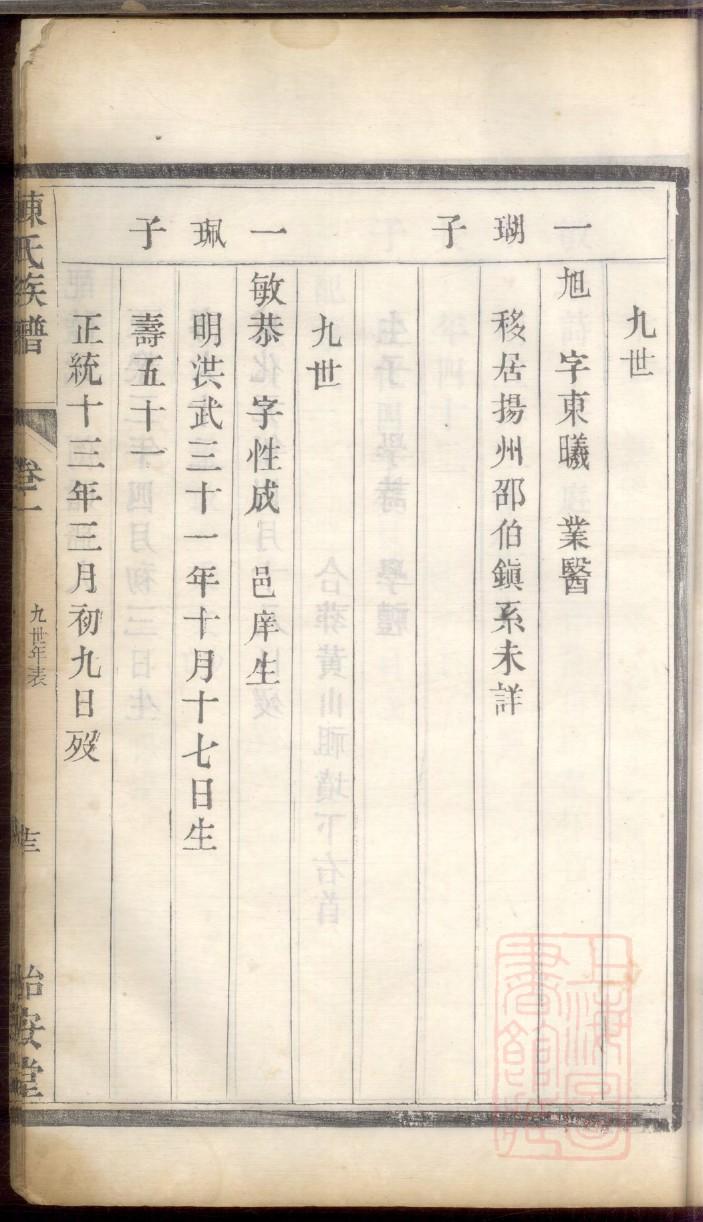 九世
一
旭 字東曦 業醫
瑚
移居揚州邵伯鎭系未詳
子
九世
一
敏恭 字性成 邑庠生
珮
明洪武三十一年十月十七日生
子
壽五十一
正統十三年三月初九日歿
陳氏族譜
卷一
九世年表
怡安堂
上海圖書館藏